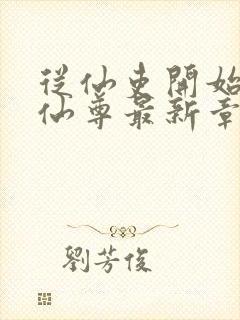 從仙吏開始
仙尊最新章
劉芳俊